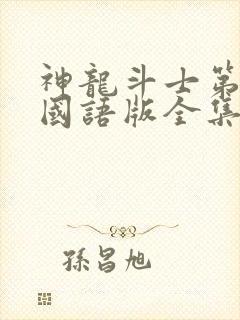 神龍斗士第
國語版全集
孫昌旭